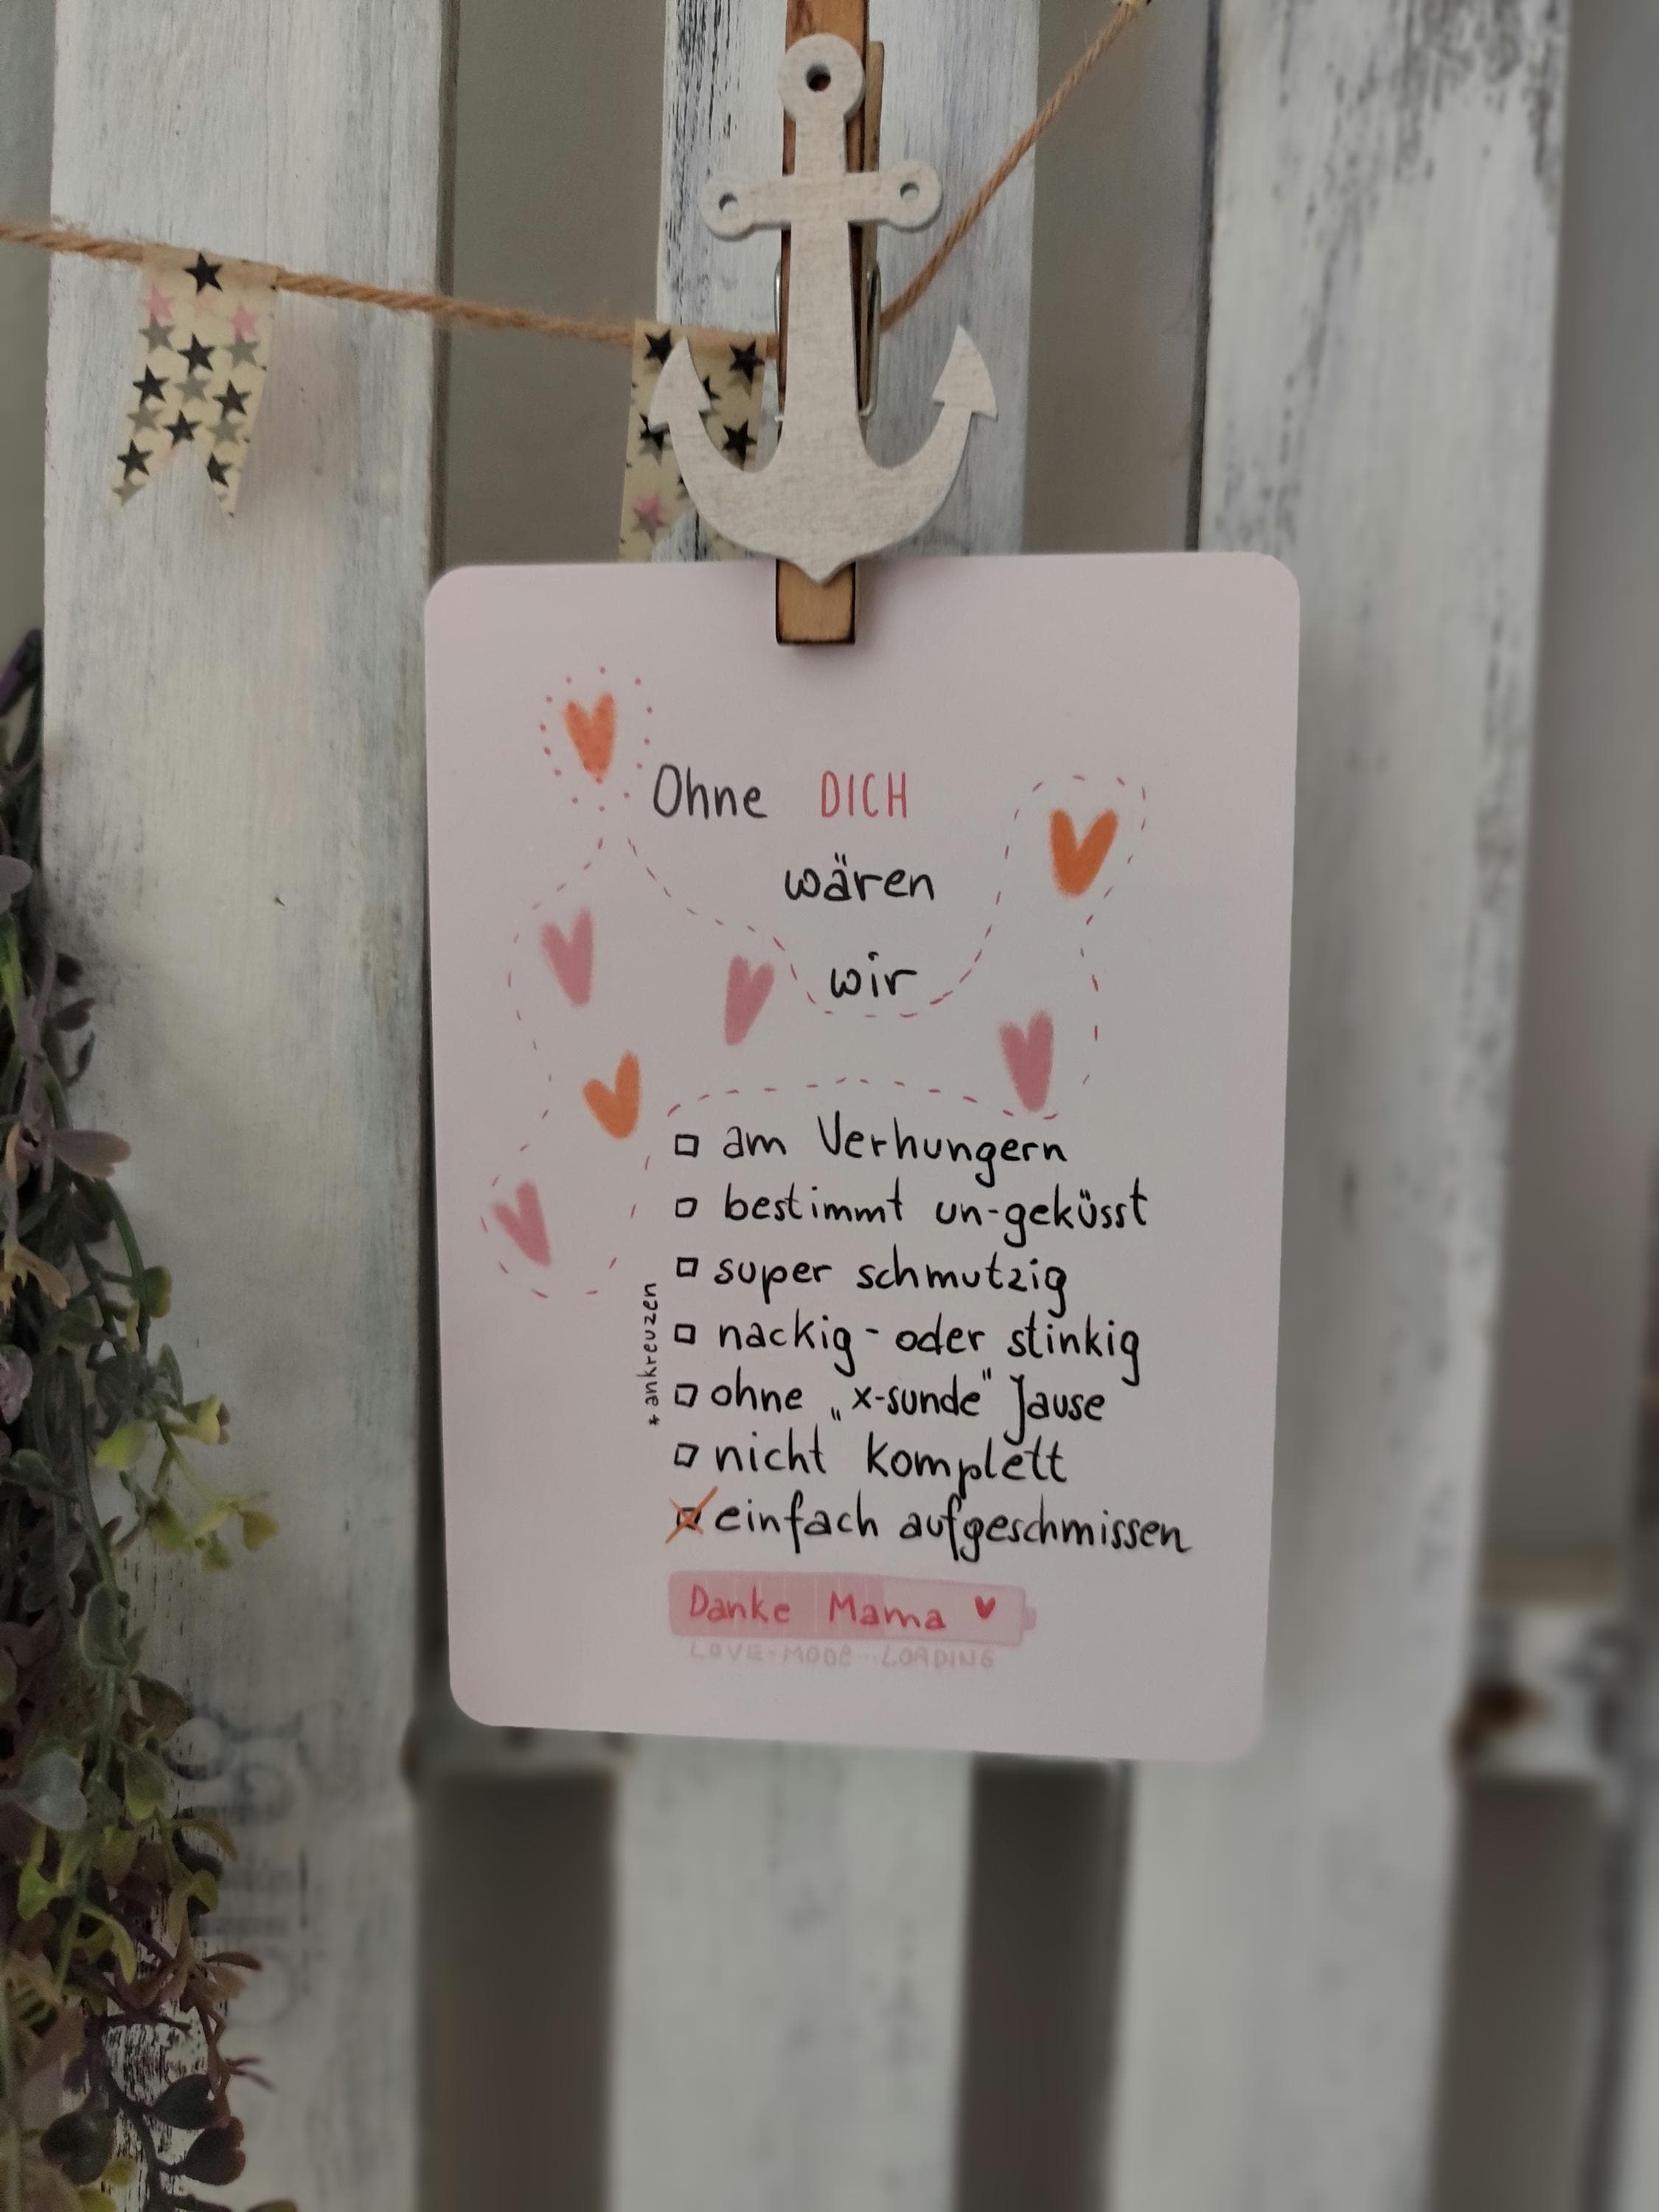 Ohne DICH
wären
wir
□ am Verhungern
□ bestimmt un-geküsst
□ super schmutzig
□ nackig - oder stinkig
□ ohne „x-sunde" Jause
□ nicht komplett
☒ einfach aufgeschmissen
* ankreuzen
Danke Mama ♥
LOVE-MODE...LOADING